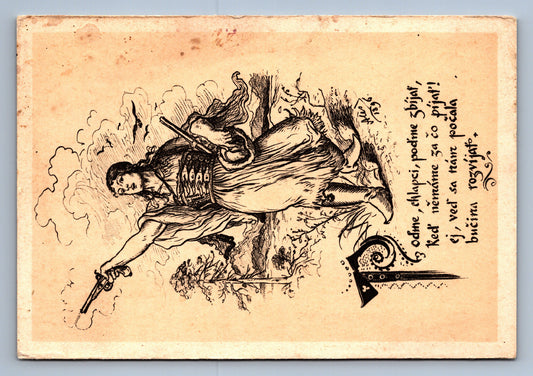 Poďme, chlapci, poďme zbíjať,
Keď němáme za čo píjať!
ej, veď sa nám počala
bučina rozvíjať.